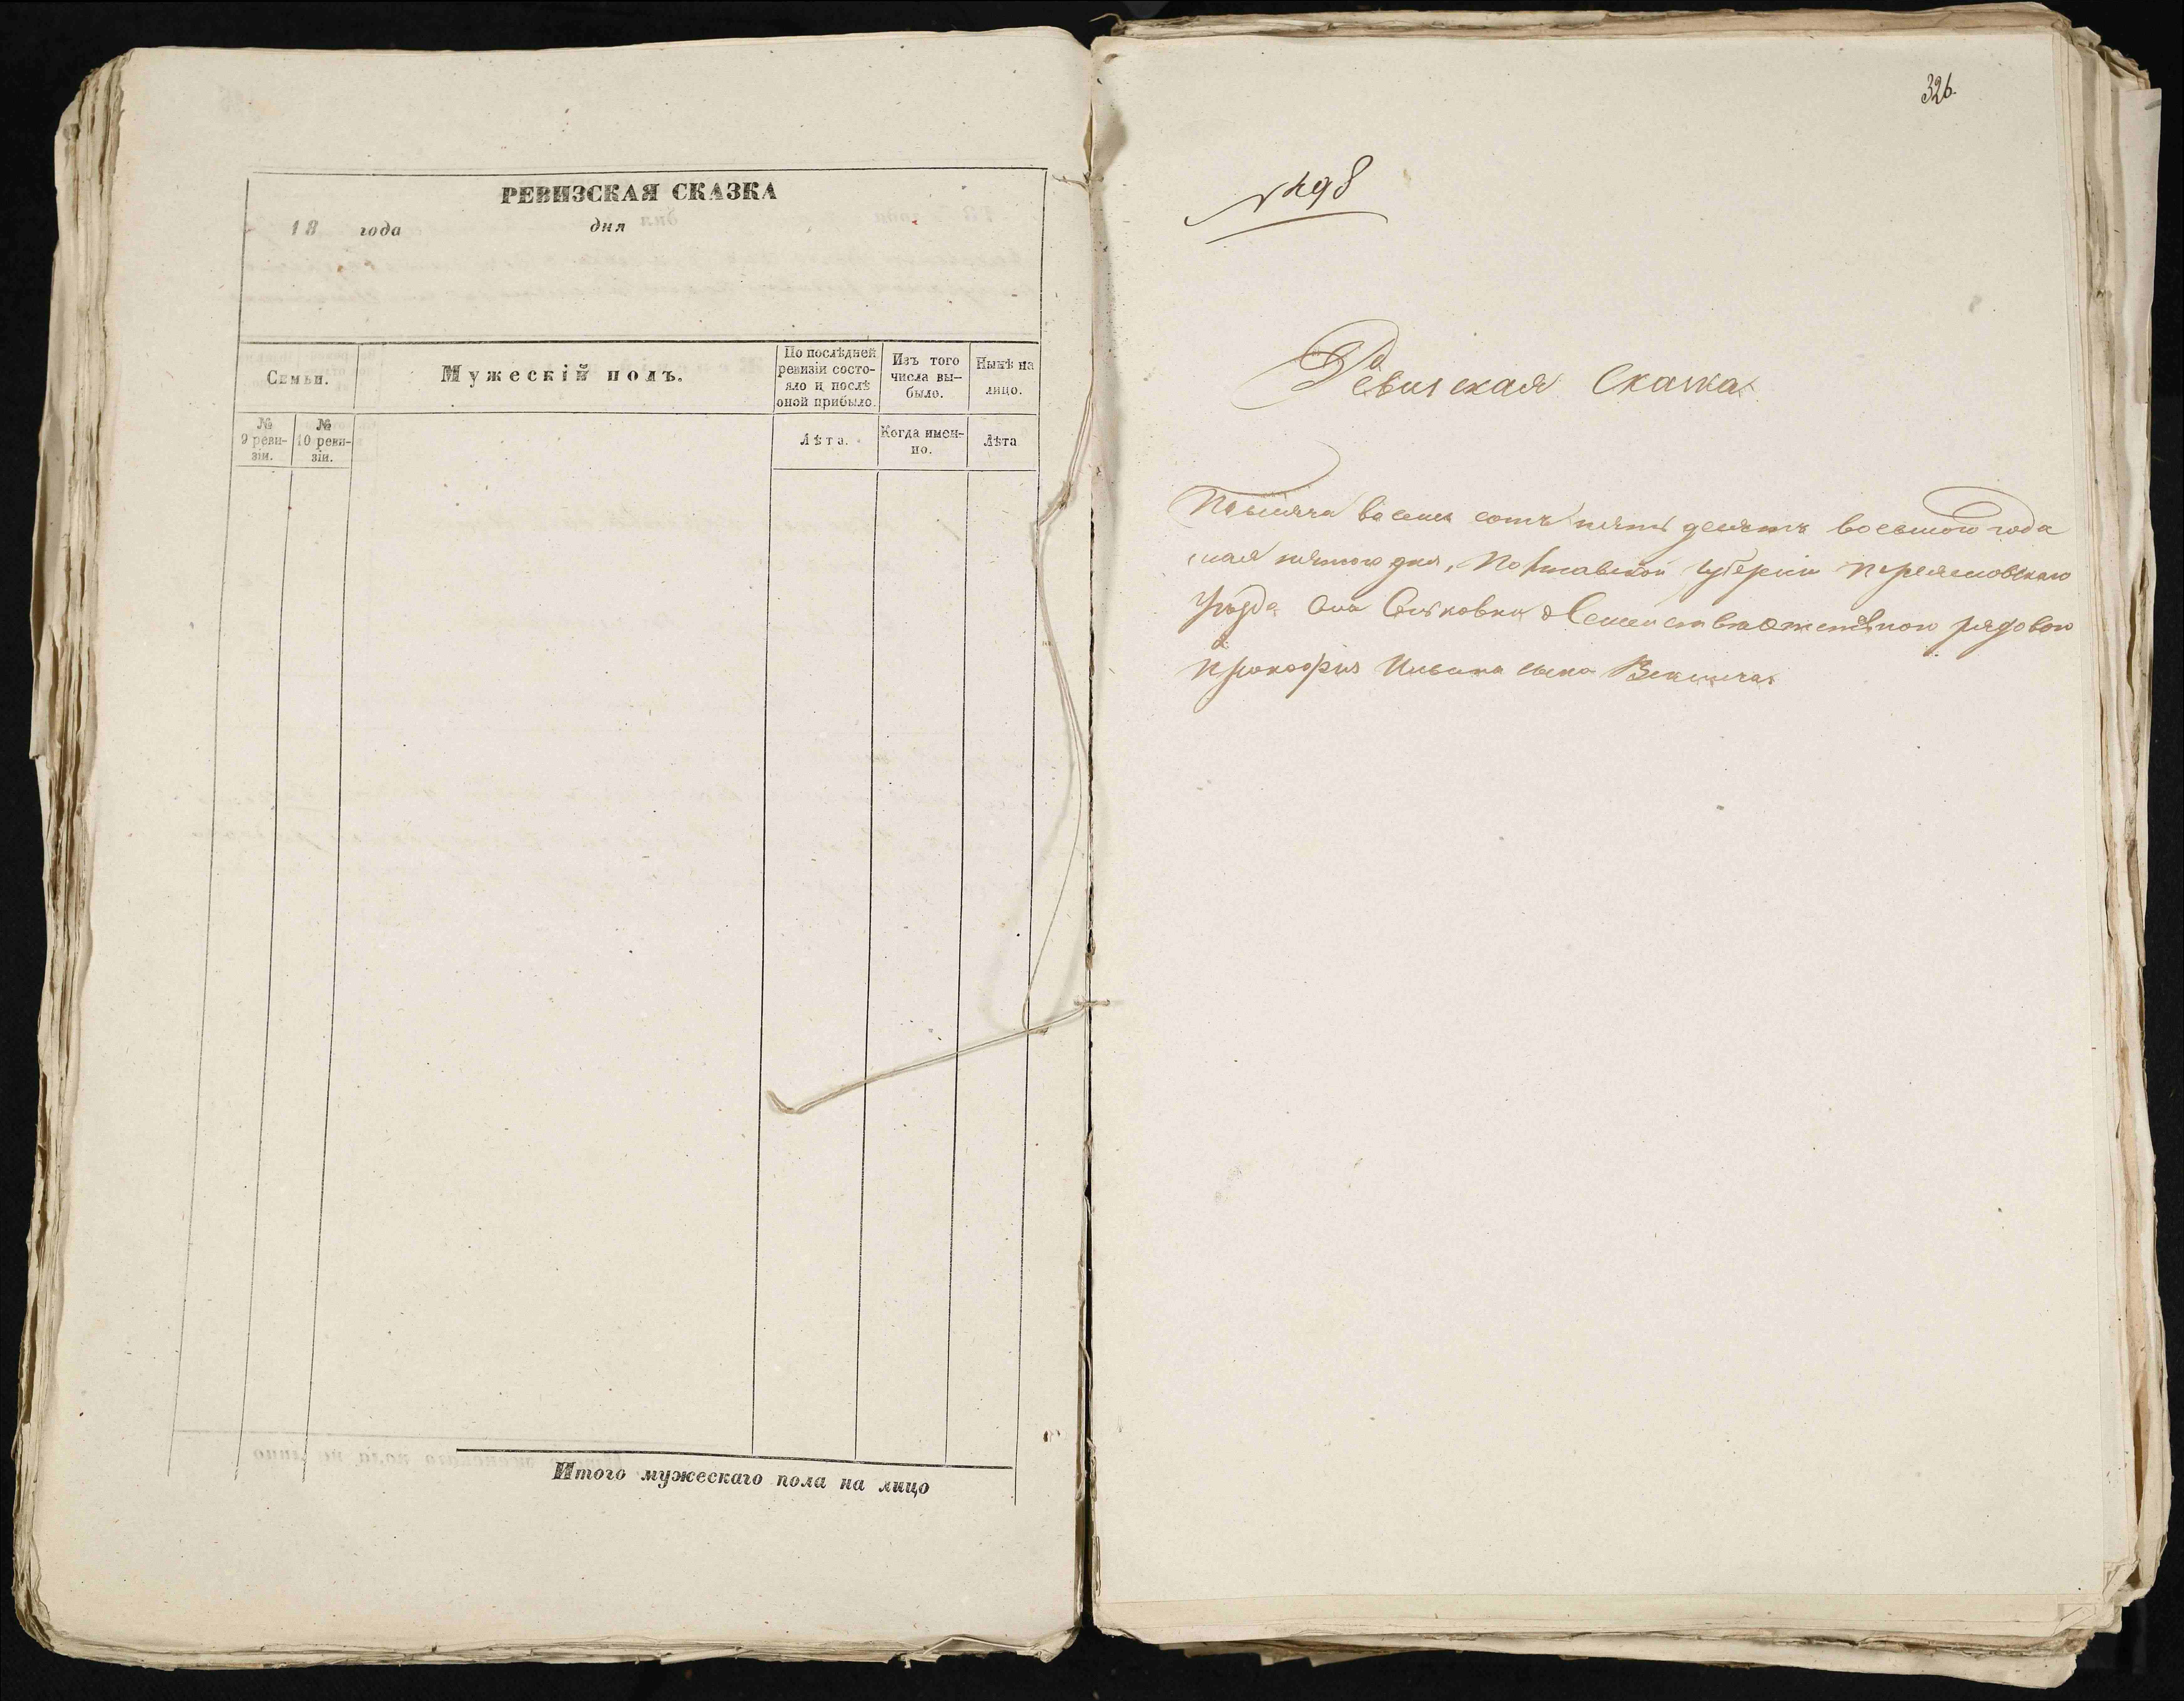 РЕВИЗСКАЯ СКАЗКА
18 года дня
Семьи.
Мужескій полъ.
По послѣдней ревизіи состояло и послѣ оной прибыло.
Изъ того числа выбыло.
Нынѣ на лицо.
№ 9 ревизіи.
№ 10 ревизіи.
Лѣта.
Когда именно.
Лѣта
Итого мужескаго пола на лицо
326.
№ 498
Ревизская Сказка
Тысяча восемь сотъ пять десятъ восьмого года
мая пятого дня, Полтавской губерніи Переясловскаго
уѣзда рядового
Прокофія сына